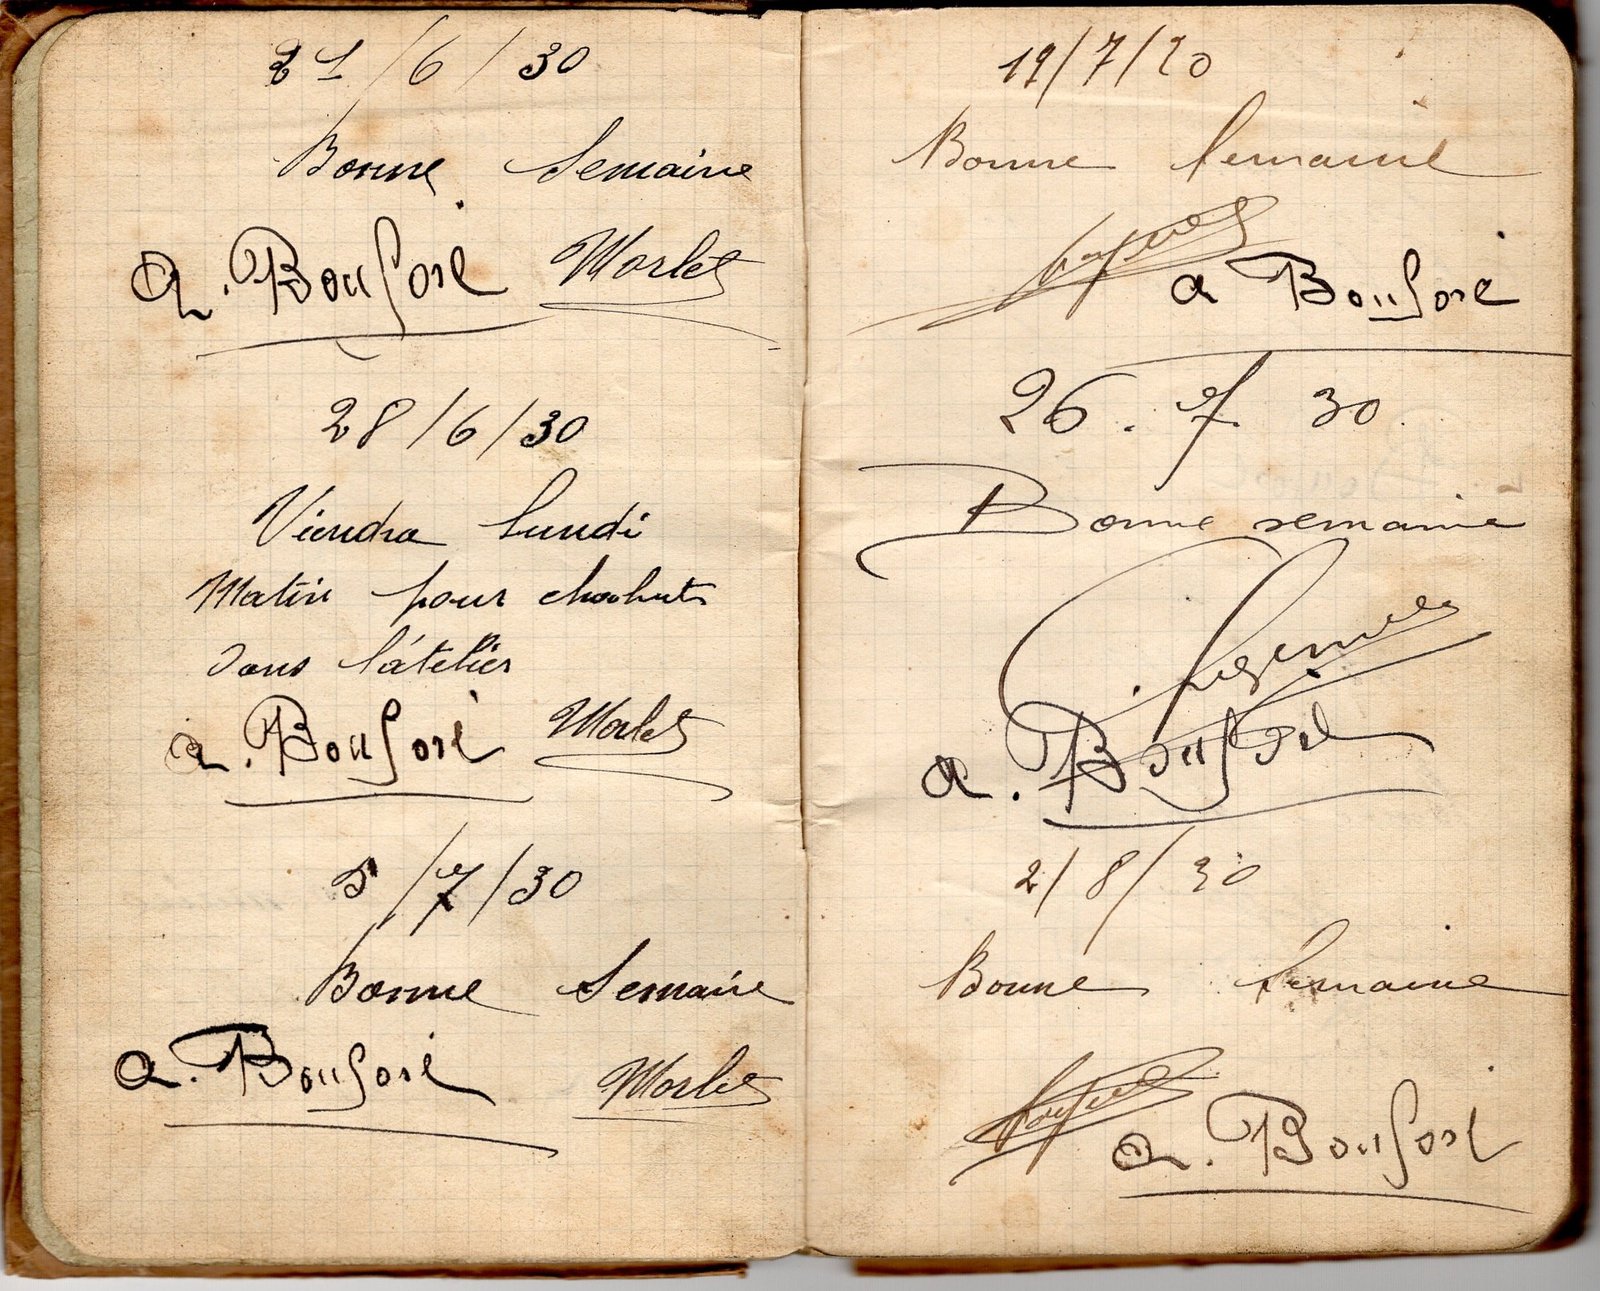 21/6/30
Bonne Semaine
a. Bousoré Morlet
28/6/30
Viendra lundi
Matin pour
dans l'atelier
a. Bousoré Morlet
5/7/30
Bonne Semaine
a. Bousoré Morlet
19/7/30
Bonne Semaine
a Bousoré
26. 7 30
Bonne semaine
a. Bousoré
2/8/30
Bonne Semaine
a. Bousoré